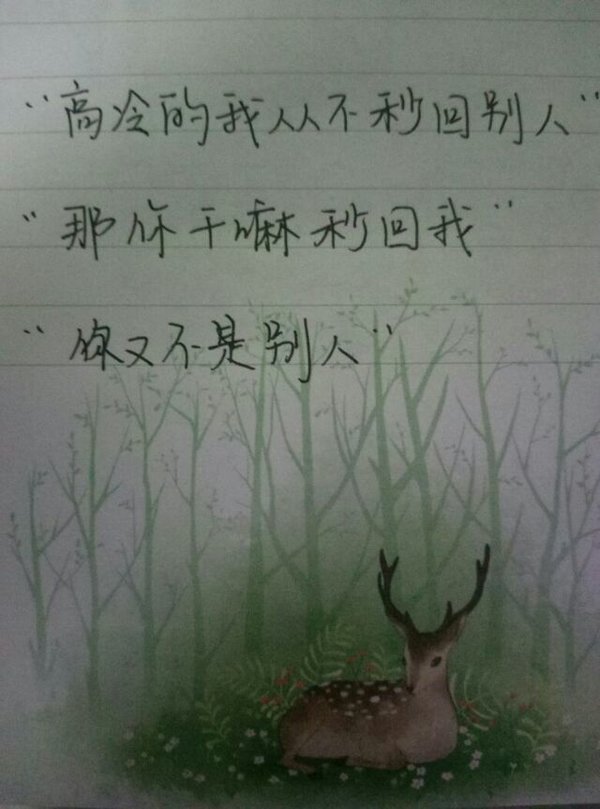 "高冷的我从不秒回别人"
"那你干嘛秒回我"
"你又不是别人"